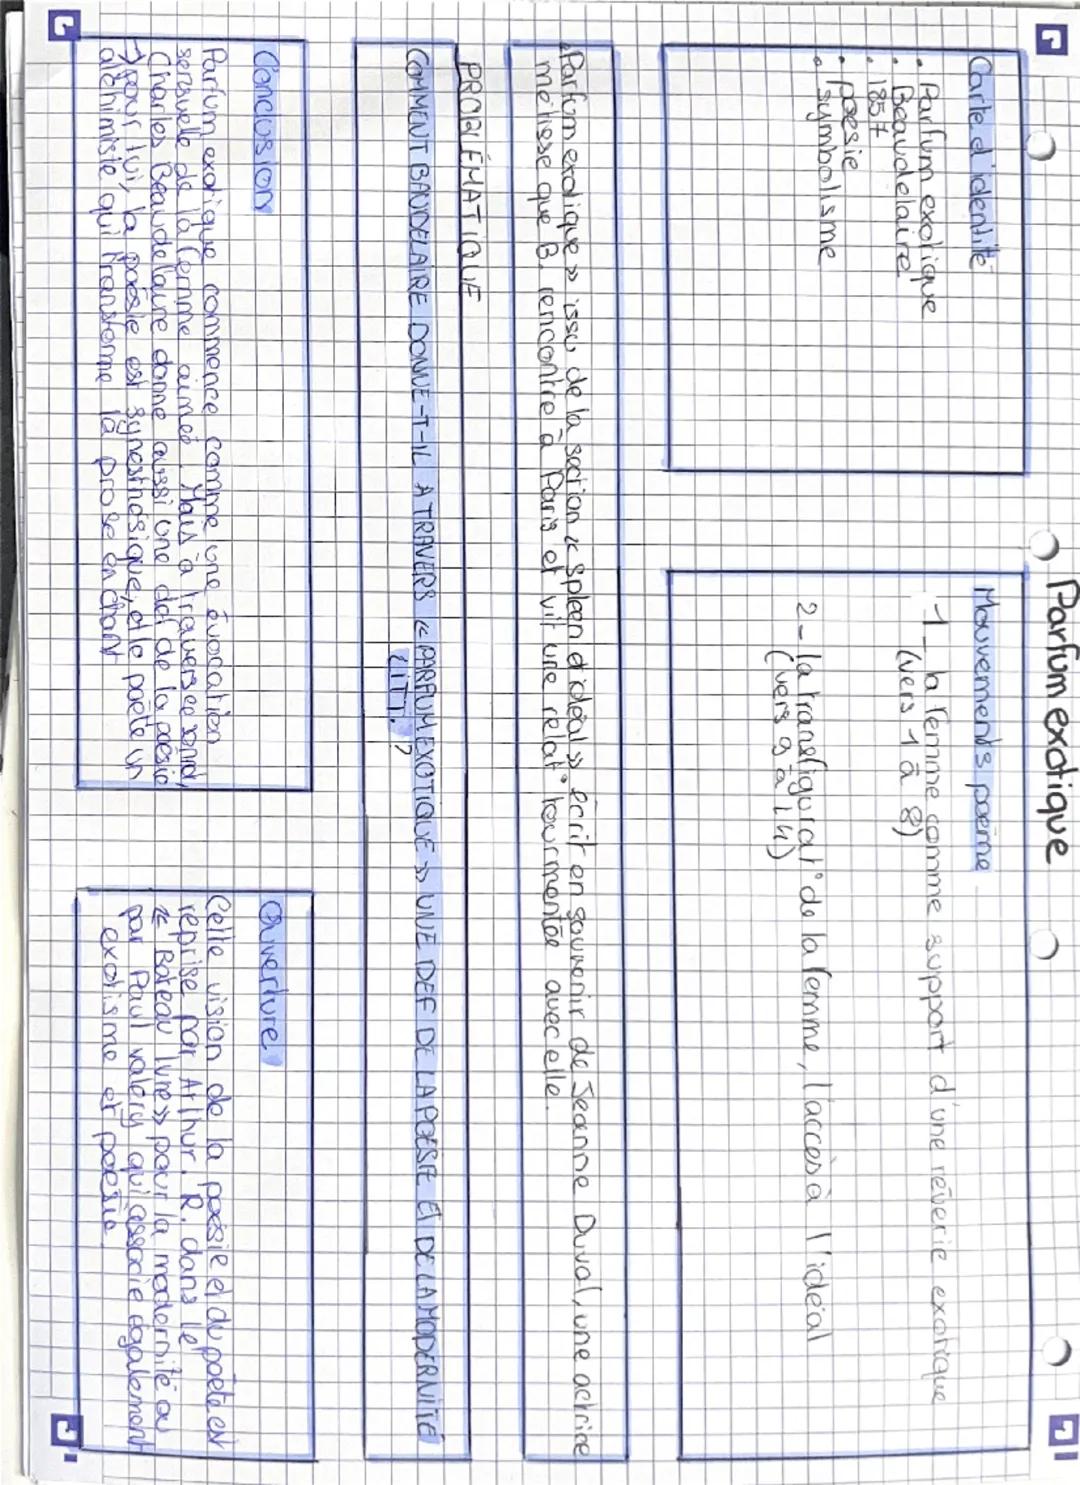 Parfum exotique
Carte d'identité
• Parfum exotique
• Beaudelaire
• 1857
• poésie
• symbolisme
Mouvements poème
1_ la femme comme support d'une rêverie exotique
(vers 1 à 8)
2 - la transfigurat° de la femme, l'accès à l'idéal
(vers 9 à 14)
«Parfum exotique» issu de la section « spleen et idéal » écrit en souvenir de Jeanne Duval, une actrice
métisse que B. rencontre à Paris et vit une relat° tourmentée avec elle.
PROBLÉMATIQUE
COMMENT BAUDELAIRE DONNE-T-IL A TRAVERS « PARFUM EXOTIQUE » UNE DEF DE LA POESIE ET DE LA MODERNITE
LITT. ?
Conclusion
Parfum exotique commence comme une évocation
sensuelle de la femme aimée. Mais à travers ce sonnet,
Charles Beaudelaire donne aussi une def de la poésie
→ pour lui, la poésie est synesthésique, et le poète un
alchimiste qui transforme la prose en chant
Ouverture
Cette vision de la poésie et du poète est
reprise par Arthur. R. dans le
« Bateau Ivre » pour la modernité ou
par Paul valéry qui associe également
exotisme et poésie.